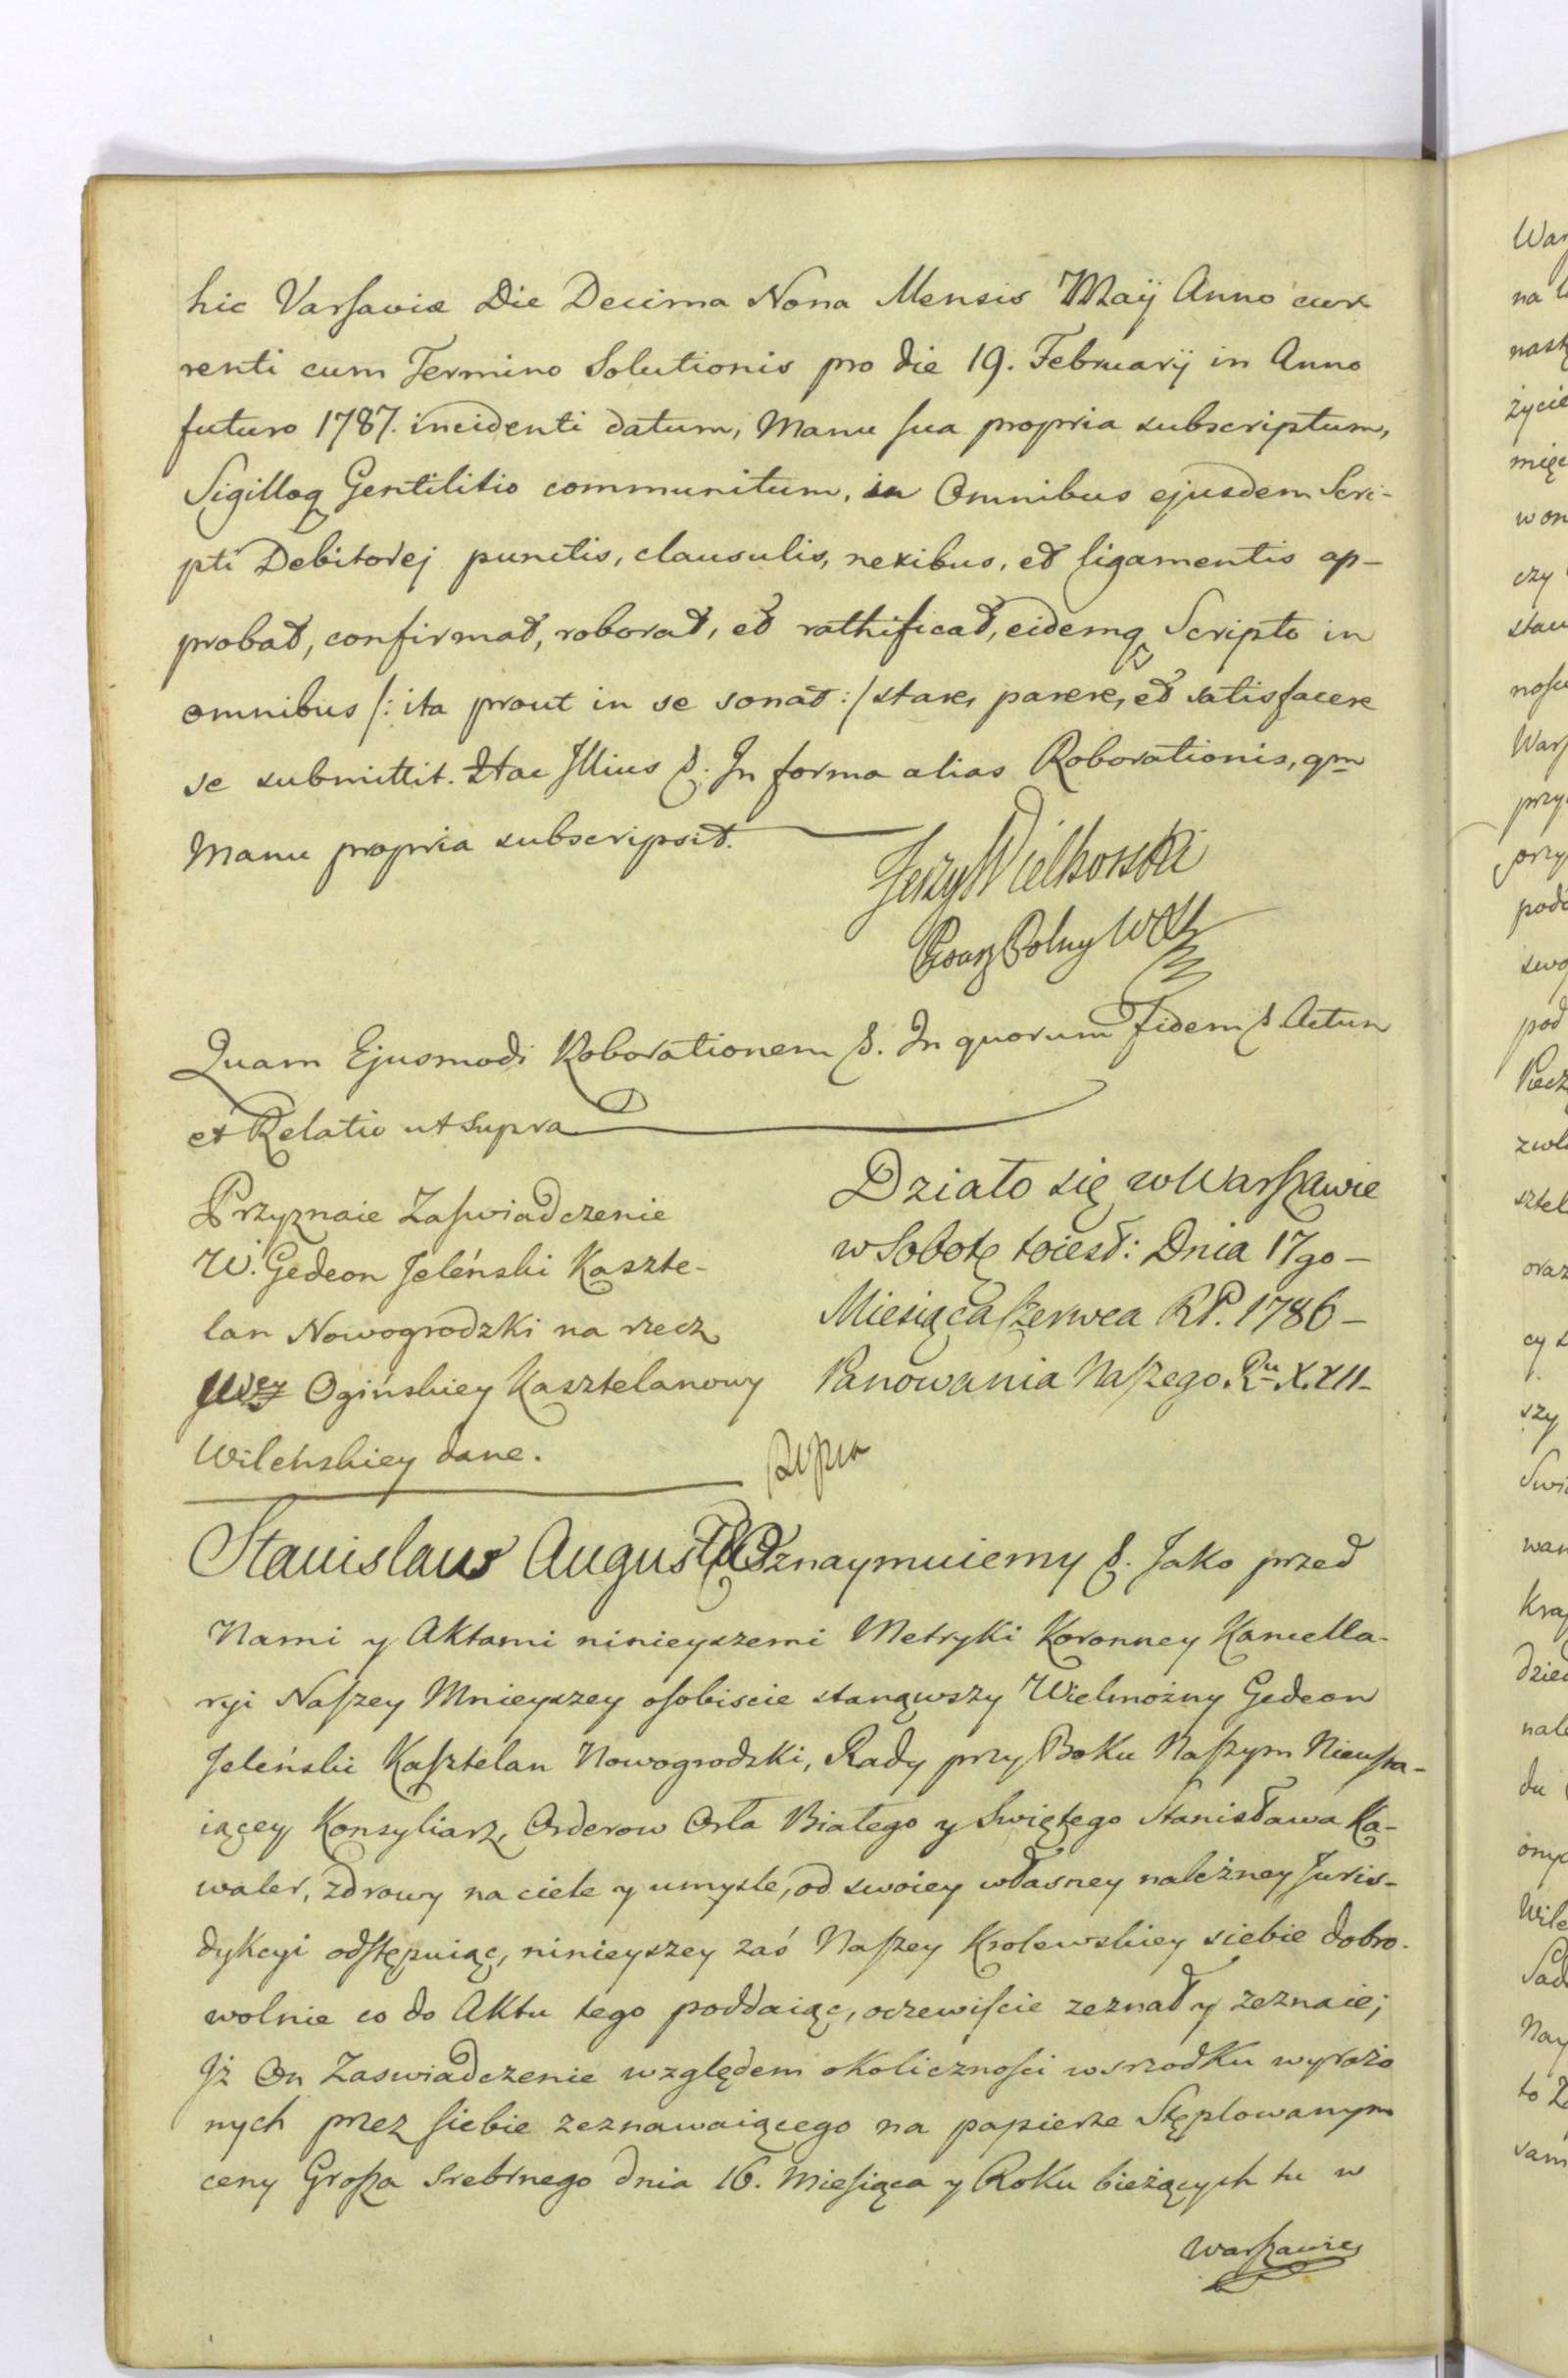 hic Varsaviæ Die Decima Nona Mensis Maÿ Anno cur
renti cum Termino Solutionis pro die 19. Februarÿ in Anno
futuro 1787. incidenti datum, Manu sua propria subscriptum,
Sigilloq Gentilitio communitum, in Omnibus ejusdem Scri-
pti Debitorej punctis, clausulis, nexibus, et ligamentis ap-
probat, confirmat, roborat, et rathificat, eidemq Scripto in
omnibus /: ita prout in se sonat :/ stare, parere, et satisfacere
se submittit. Hac Illius &. In forma alias Roborationis, qm
Manu propria subscripsit.
Jerzy Wielhorski
Pisarz Polny WXL
Quam Ejusmodi Roborationem &. In quorum Fidem & Actum
et Relatio ut supra
Przyznaie Zaswiadczenie
W. Gedeon Jeleński Kaszte-
lan Nowogrodzki na rzecz
Ogińskiey Kasztelanowy
Wileńskiey dane.
Działo się w Warszawie
w Sobotę toiest: Dnia 17go –
Miesiąca Czerwca RP. 1786 –
Panowania Naszego Ru XXII –
Stanislaw August Oznaymuiemy &. Jako przed
Nami y Aktami ninieyszemi Metryki Koronney Kancella-
ryi Naszey Mnieyszey osobiscie stanąwszy Wielmożny Gedeon
Jeleński Kasztelan Nowogrodzki, Rady przy Boku Naszym Nieusta-
iącey Konsyliarz, Orderow Orła Białego y Swiętego Stanisława Ka-
waler, zdrowy na ciele y umysle, od swoiey własney należney Juris-
dykcyi odstępuiąc, ninieyszey zaś Naszey Krolewskiey siebie dobro-
wolnie co do Aktu tego poddaiąc, oczewiscie zeznał y zeznaie;
Iż On Zaswiadczenie względem okolicznosci wsrzodku wyrażo
nych przez siebie zeznawaiącego na papierze Stęplowanym
ceny Grosza srebrnego dnia 16. Miesiąca y Roku bieżących tu w
Warszawie